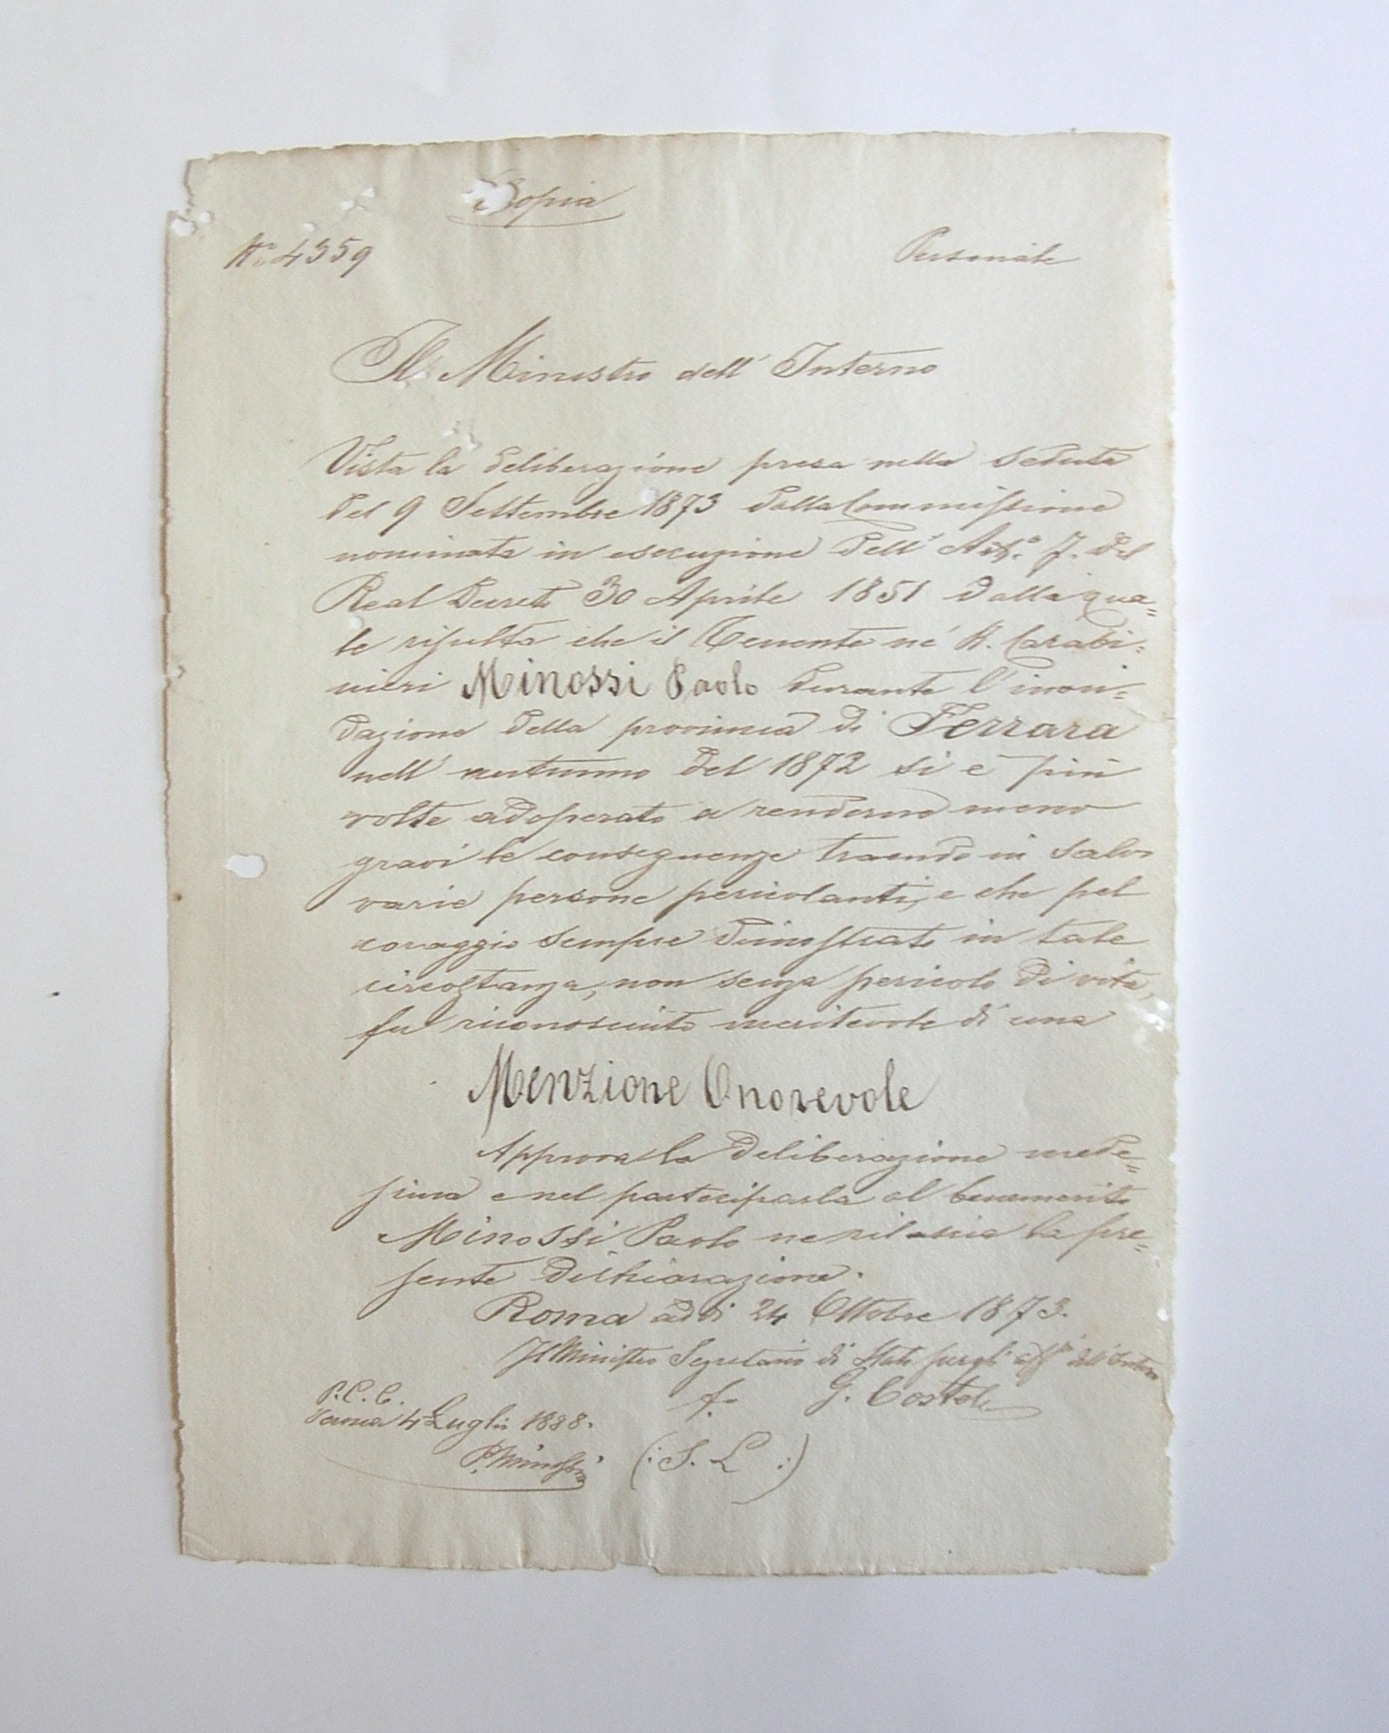 Copia
N.° 4359
Personale
Il Ministro dell' Interno
Vista la deliberazione presa nella seduta
del 9 Settembre 1873 dalla Commissione
nominata in esecuzione dell' Art.° 7. del
Real Decreto 30 Aprile 1851 dalla qua=
le risulta che il Tenente ne' R. Carabi=
nieri Minossi Paolo durante l'inon=
dazione della provincia di Ferrara
nell' autunno del 1872 si è più
volte adoperato a renderne meno
gravi le conseguenze traendo in salvo
varie persone pericolanti, e che pel
coraggio sempre dimostrato in tale
circostanza, non senza pericolo di vita,
fu riconosciuto meritevole di una
Menzione Onorevole
Approva la deliberazione mede=
sima e nel parteciparla al benemerito
Minossi Paolo ne rilascia la pre=
sente dichiarazione.
Roma addi 24 Ottobre 1873.
Il Ministro Segretario di Stato per gli aff.ri dell'Interno
f.° G. Cantelli
P.C.C.
4 Luglio 1888.
P. Minossi
(: S. L :)